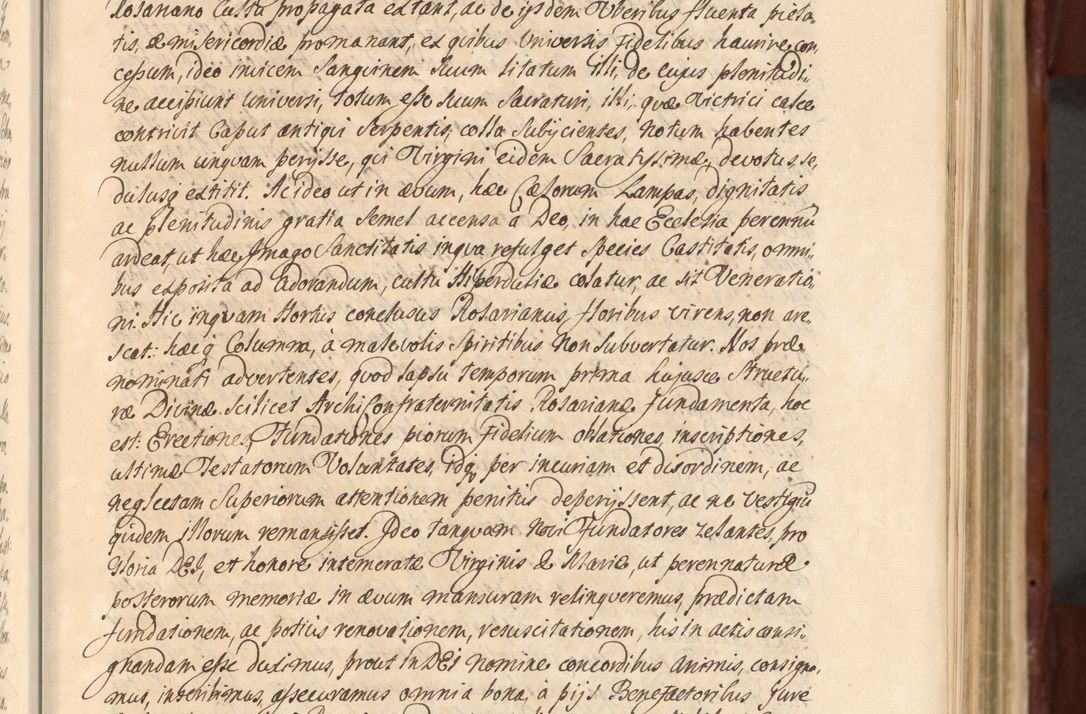 Rosariano Cultu propagata extant, ac de ijsdem Vberibus fluenta pieta-
tis, & misericordiæ promanant, ex quibus Universis Fidelibus haurire con,
cessum, ideo invicem Sanguinem suum litatum illi, de cujus plenitudi,
ne accipiunt universi, totum esse suum Sacraturi, illi, quæ Victrici calce
contrivit Caput antiqui Serpentis, colla Subijcientes, notum habentes
nullum unquam perijsse, qui Virgini eidem Sacratissimæ devotus, se,
dulusq extitit. Ac ideo ut in ævum, hæc Cælorum Lampas, dignitatis
ac plenitudinis gratia Semel accensa à Deo, in hac Ecclesia perenniù
ardeat, ut hæc Imago Sanctitatis in qva refulget Species Castitatis, omni,
bus exposita ad adorandum, cultu Hiperduliæ colatur, ac sit Veneratio,
ni. Hic inquam Hortus conclusus Rosarianus floribus virens, non are,
scat: hæcq Columna, à malevolis Spiritibus non Subvertatur. Nos præ,
nominati advertentes, quod lapsu temporum prima hujusce Structu,
ræ Divinæ. Scilicet ArchiConfraternitatis Rosarianæ fundamenta, hoc
est: Erectiones, Fundationes piorum Fidelium oblationes, inscriptiones,
ultimæ Testatorum Voluntates, idq per incuriam et disordinem, ac
neglectam Superiorum attentionem penitus deperijssent, ac ne vestigiũ
quidem illorum remansisset. Ideo tanquam novi Fundatores zelantes, pro
Gloria DEI, et honore intemeratæ Virginis & Mariæ, ut perennaturæ
posterorum memoriæ in ævum mansuram relinqveremus, prædictam
fundationem, ac potius renovationem, resuscitationem, his in actis consi,
gnandam esse duximus, prout in DEI nomine concordibus animis, consigna,
mus, inscribimus, assecuramus omnia bona, à pijs Benefactoribus jure